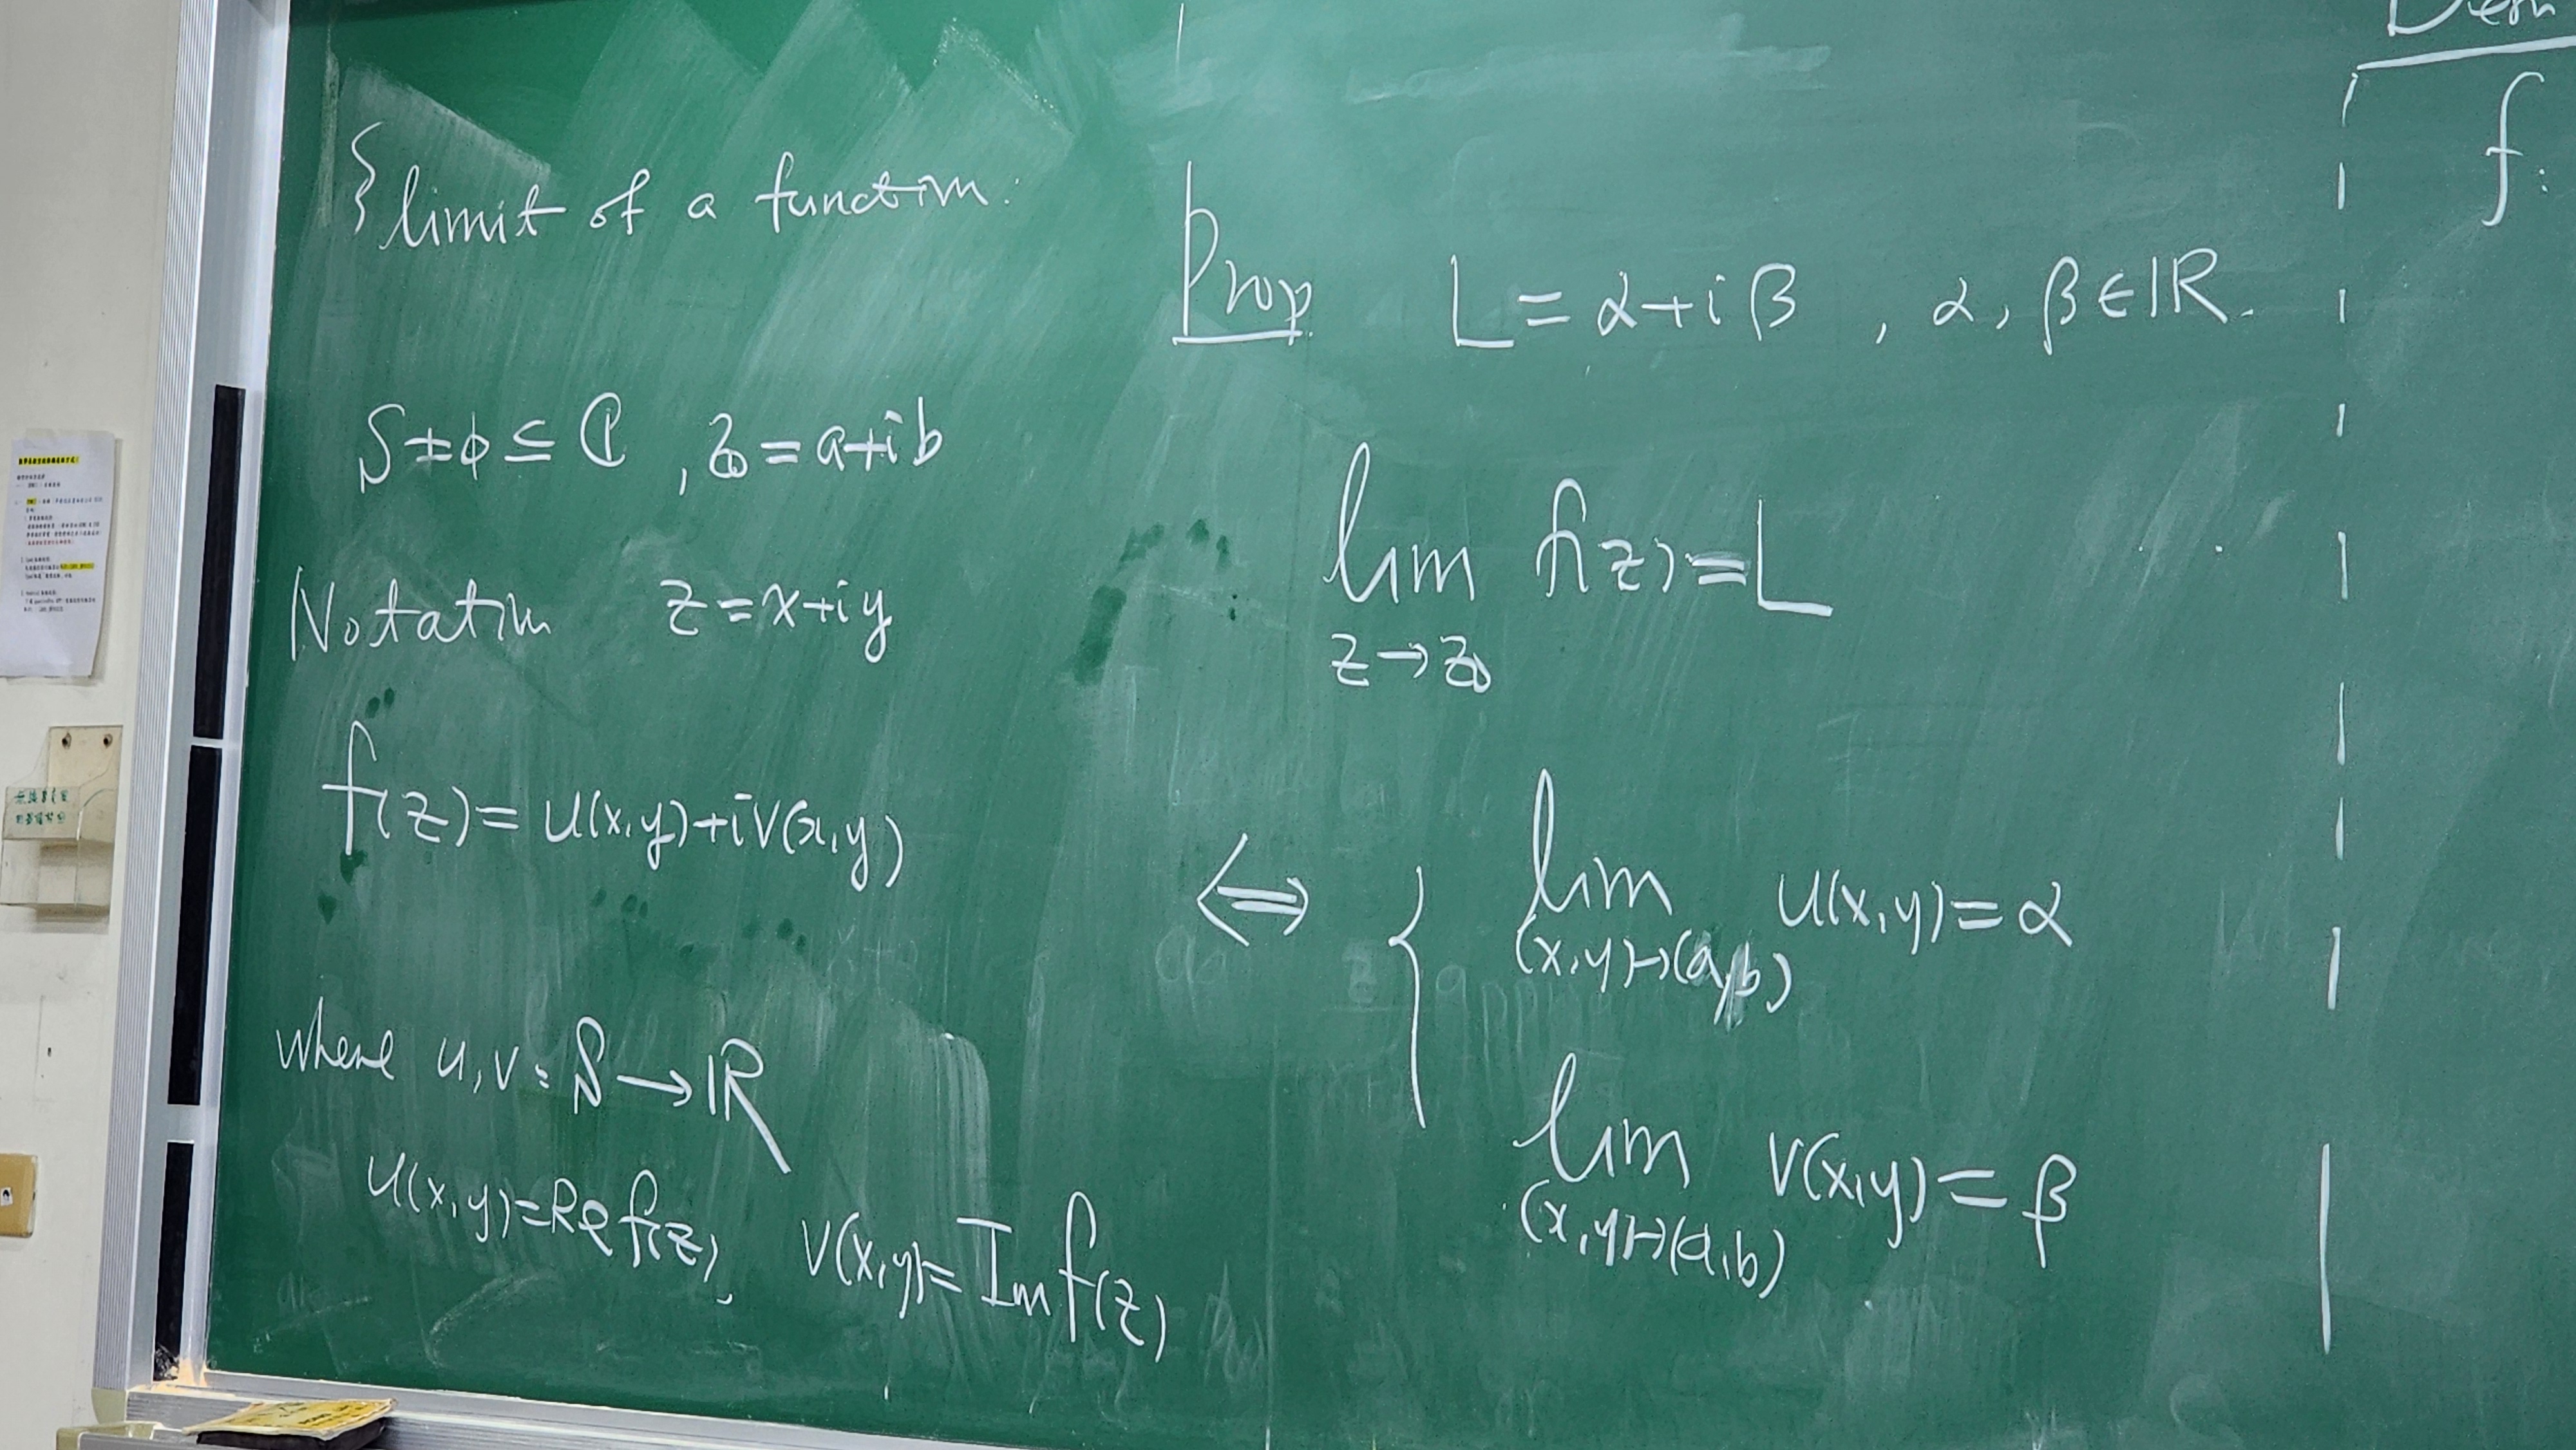 § limit of a function:
S ≠ ϕ ⊆ ℂ , z₀ = a+ib
Notation z = x+iy
f(z) = u(x,y)+iv(x,y)
where u,v : S → ℝ
u(x,y) = Re f(z), v(x,y) = Im f(z)
Prop L = α+iβ , α, β ∈ ℝ.
lim f(z) = L
z → z₀
⇔ { lim u(x,y) = α
(x,y)→(a,b)
lim v(x,y) = β
(x,y)→(a,b)
f: